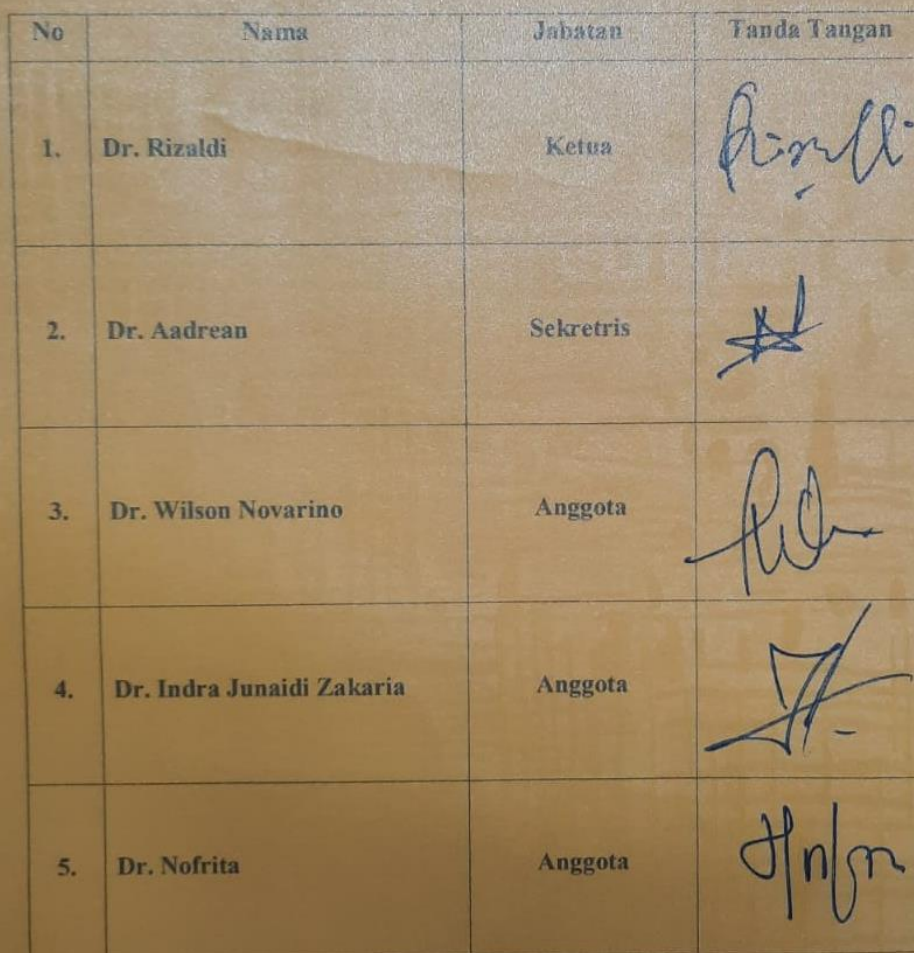 No Nama Jabatan Tanda Tangan
1. Dr. Rizaldi Ketua
2. Dr. Aadrean Sekretris
3. Dr. Wilson Novarino Anggota
4. Dr. Indra Junaidi Zakaria Anggota
5. Dr. Nofrita Anggota